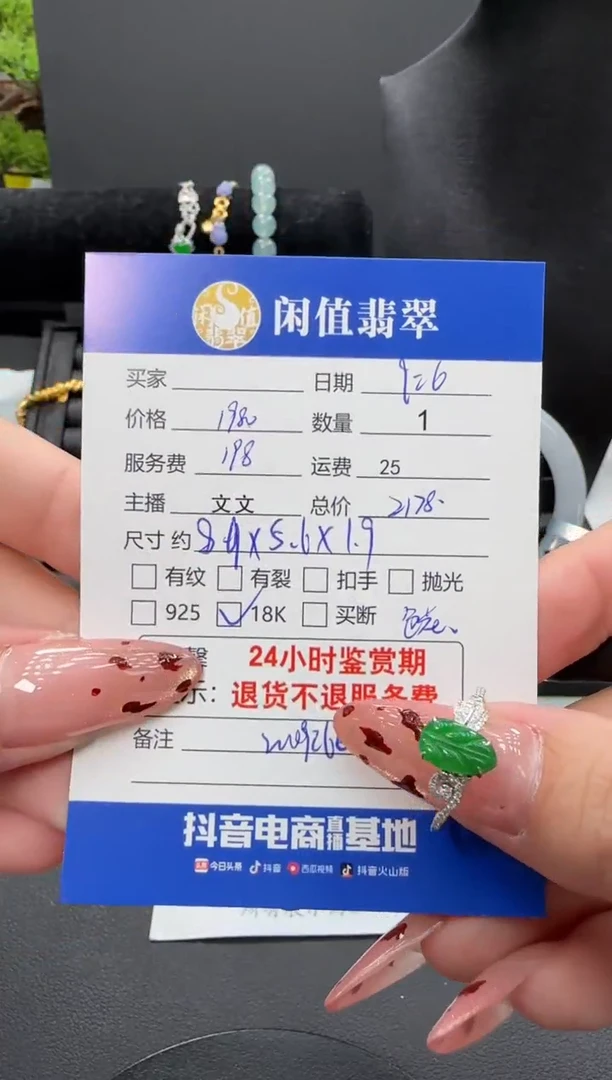 闲值翡翠
买家 日期
价格 1980 数量 1
服务费 198 运费 25
主播 文文 总价 2178.
尺寸 约 8.9X5.6X1.9
有纹 有裂 扣手 抛光
925 18K 买断
24小时鉴赏期
示：退货不退服务费
备注
抖音电商直播基地
头条 今日头条 抖音 西瓜视频 抖音火山版